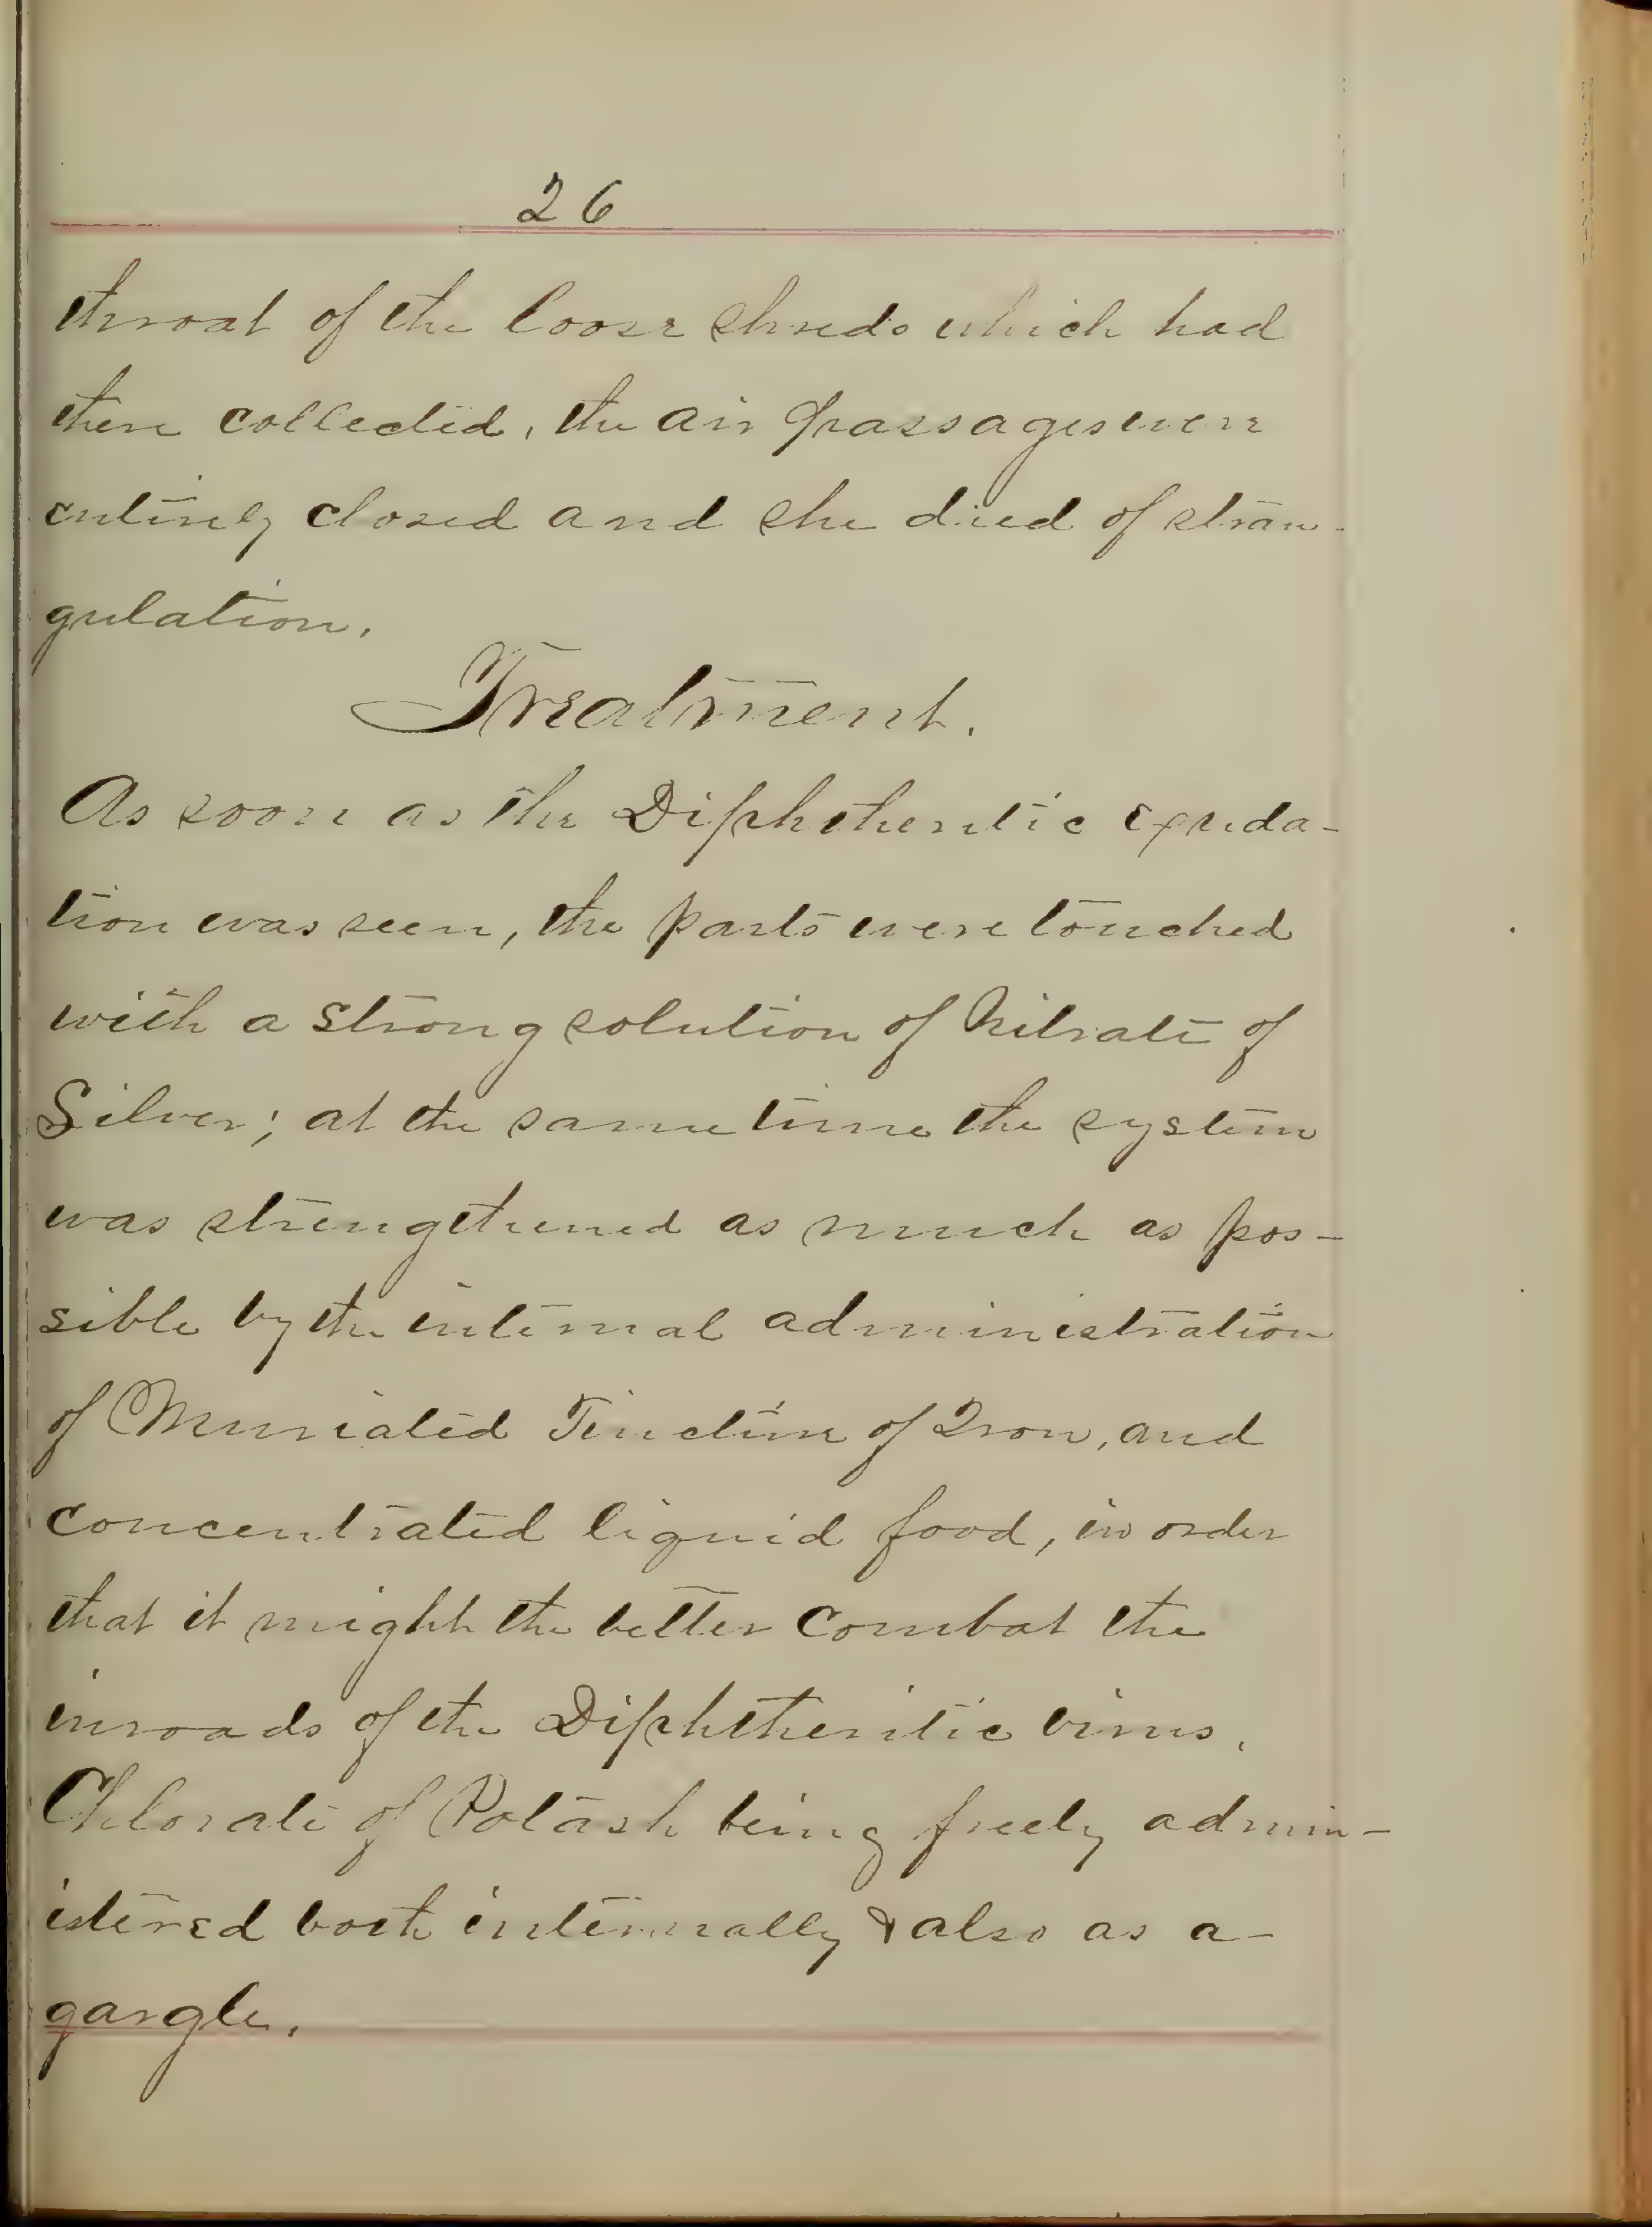 26
throat of the loose shreds which had
there collected, the air passages were
entirely closed and she died of stran-
gulation.
Treatment.
As soon as the Diphtheritic exuda-
tion was seen, the parts were touched
with a strong solution of Nitrate of
Silver; at the same time the system
was strengthened as much as pos-
sible by the internal administration
of Muriated Tincture of Iron, and
concentrated liquid food, in order
that it might the better combat the
inroads of the Diphtheritic virus.
Chlorate of Potash being freely admin-
istered both internally & also as a-
gargle.